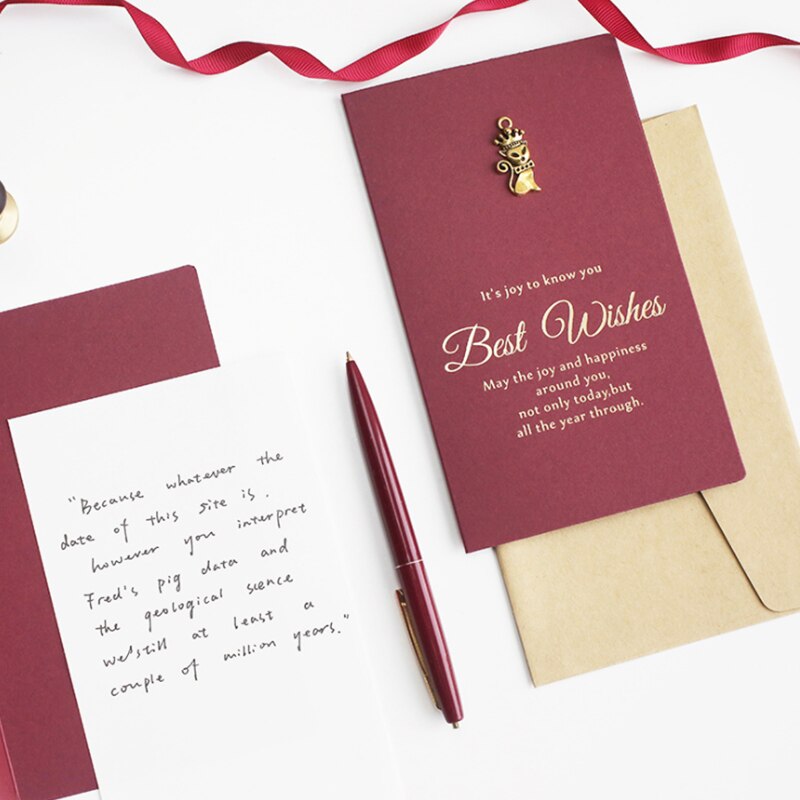 It's joy to know you
Best Wishes
May the joy and happiness
around you,
not only today,but
all the year through.
"Because whatever the
date of this site is.
however you interpret
Fred's pig data and
the geological science
we'still at least a
couple of million years."